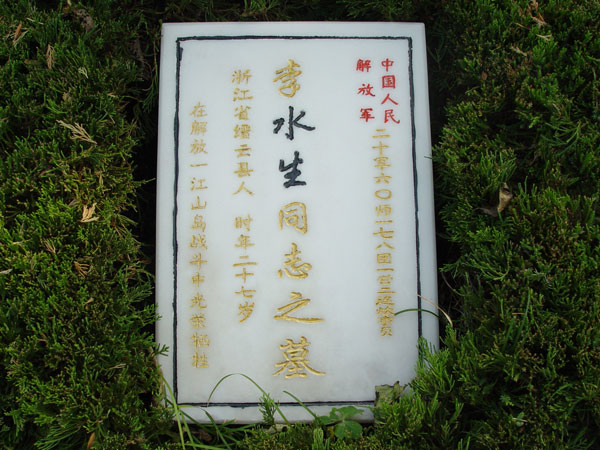 中国人民
解放军
二十军六〇师一七八团一营二连
李水生同志之墓
浙江省缙云县人 时年二十七岁
在解放一江山岛战斗中光荣牺牲